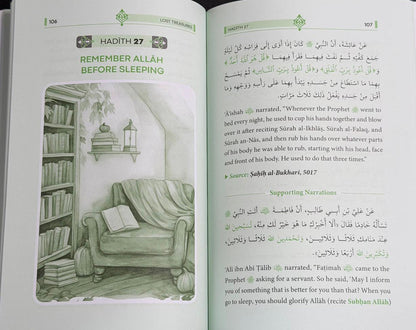 106
LOST TREASURES
HADĪTH 27
REMEMBER ALLĀH
BEFORE SLEEPING
HADĪTH 27
107
عَنْ عَائِشَةَ، أَنَّ النَّبِيَّ ﷺ كَانَ إِذَا أَوَى إِلَى فِرَاشِهِ كُلَّ لَيْلَةٍ
جَمَعَ كَفَّيْهِ ثُمَّ نَفَثَ فِيهِمَا فَقَرَأَ فِيهِمَا
ثُمَّ يَمْسَحُ بِهِمَا مَا اسْتَطَاعَ مِنْ جَسَدِهِ يَبْدَأُ بِهِمَا عَلَى رَأْسِهِ وَوَجْهِهِ وَمَا
أَقْبَلَ مِنْ جَسَدِهِ يَفْعَلُ ذَلِكَ ثَلَاثَ مَرَّاتٍ
'Ā'ishah narrated, "Whenever the Prophet ﷺ went to
bed every night, he used to cup his hands together and blow
over it after reciting Sūrah al-Ikhlāṣ, Sūrah al-Falaq, and
Sūrah an-Nās, and then rub his hands over whatever parts
of his body he was able to rub, starting with his head, face
and front of his body. He used to do that three times."
Source: Ṣaḥīḥ al-Bukhari, 5017
Supporting Narrations
عَنْ عَلِيِّ بْنِ أَبِي طَالِبٍ، أَنَّ فَاطِمَةَ أَتَتِ النَّبِيَّ ﷺ
تَسْتَخْدِمُهُ، فَقَالَ: أَلَا أُخْبِرُكِ مَا هُوَ خَيْرٌ لَكِ مِنْهُ،
عِنْدَ مَنَامِكِ ثَلَاثًا وَثَلَاثِينَ، وَتَحْمَدِينَ اللَّهَ ثَلَاثًا وَثَلَاثِينَ،
أَرْبَعًا وَثَلَاثِينَ
'Alī ibn Abī Ṭālib narrated, "Fāṭimah came to the
Prophet ﷺ asking for a servant. So he said, 'May I inform
you of something that is better for you than that? When you
go to sleep, you should glorify Allāh (recite Subḥan Allāh)